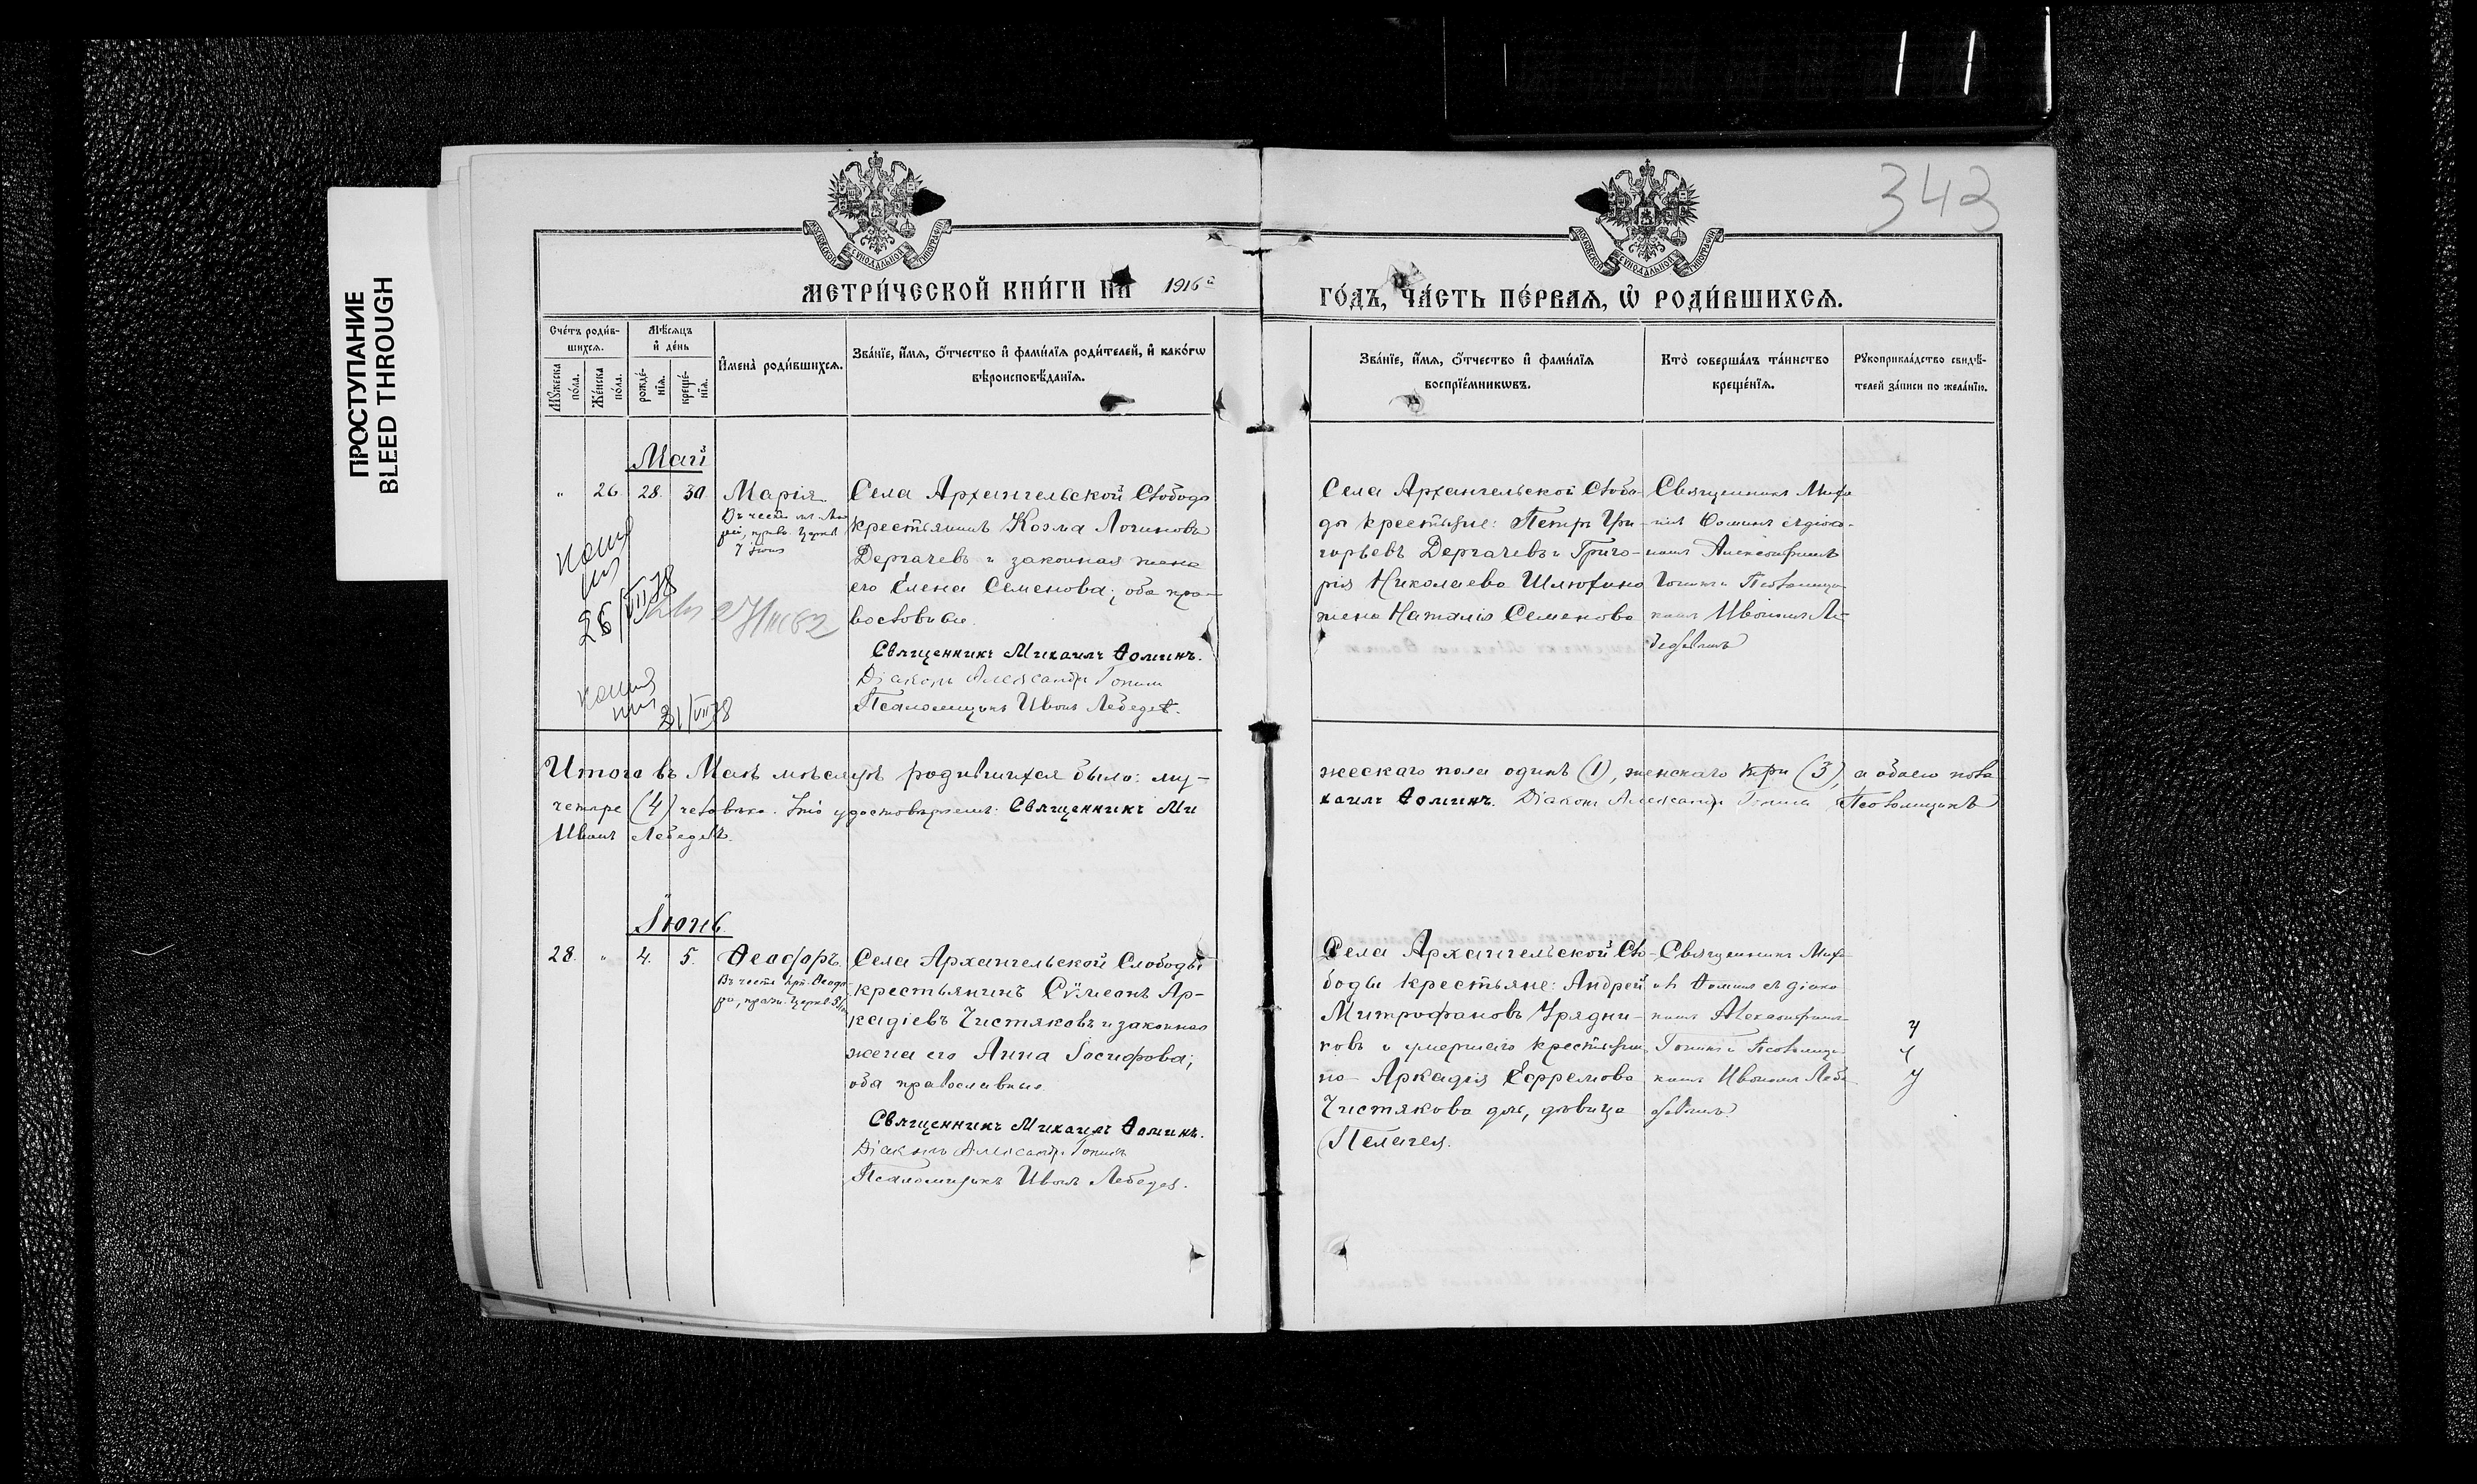 ПРОСТУПАНИЕ
BLEED THROUGH
11
343
МОСКОВСКОЙ СѴНОДАЛЬНОЙ ТИПОГРАФІИ
МОСКОВСКОЙ СѴНОДАЛЬНОЙ ТИПОГРАФІИ
МЕТРИ́ЧЕСКОЙ КНИ́ГИ НА 1916й
ГО́ДЪ, ЧА́СТЬ ПЕ́РВАѦ, Ѡ РОДИ́ВШИХСѦ.
Сче́тъ роди́в-
шихсѧ.
Мꙋжеска по́ла.
Же́нска по́ла.
Мѣ́сѧцъ
и де́нь
рожде́-
нїѧ.
креще́-
нїѧ.
Имена̀ роди́вшихсѧ.
Зва́нїе, и́мѧ, о́тчество и фами́лїѧ роди́телей, и како́гѡ
вѣроисповѣ́данїѧ.
Зва́нїе, и́мѧ, о́тчество и фами́лїѧ
воспрїе́мникѡвъ.
Кто̀ соверша́лъ та́инство
креще́нїѧ.
Рꙋкоприкла́дство свидѣ́-
телей за́писи по жела́нїю.
Май
" 26. 28. 30. Марія
7 Іюня
Села Архангельской Слободы
крестьянинъ Козма Логиновъ
Дергачевъ и законная жена
его Елена Семенова; оба пра-
вославные.
Священникъ Михаилъ Ѳоминъ.
Діаконъ Александръ
Псаломщикъ Иванъ Лебедев.
Села Архангельской Слобо-
ды крестьяне: Петръ Гри-
горьевъ Дергачевъ и Григо-
рія Николаева
жена Наталія Семенова
Священникъ Миха
илъ Ѳоминъ съ діако-
номъ Александромъ
и Псаломщи-
комъ Иваномъ Ле-
бедевымъ
копия
26/VII 78
копия
31/VII 78
Итого въ Маѣ мѣсяцѣ родившихся было: му-
жескаго пола одинъ (1), женскаго три (3), а обоего пола
четыре (4) человѣка. Что удостовѣряемъ: Священникъ Ми
хаилъ Ѳоминъ. Діаконъ Александръ Псаломщикъ
Иванъ Лебедевъ.
Іюнь
28. " 4. 5. Ѳеодоръ.
Села Архангельской Слободы
крестьянинъ Сѵмеонъ Ар-
кадіевъ Чистяковъ и законная
жена его Анна Іосифова;
оба православные.
Священникъ Михаилъ Ѳоминъ.
Діаконъ Александръ
Псаломщикъ Иванъ Лебедев.
Села Архангельской Сло-
боды крестьяне: Андрей
Митрофановъ Урядни-
ковъ и умершаго крестьяни
на Аркадія Ефремова
Чистякова дочь, дѣвица
Пелагея.
Священникъ Миха-
илъ Ѳоминъ съ діако
номъ Александромъ
и Псаломщи
комъ Иваномъ Лебе
девымъ